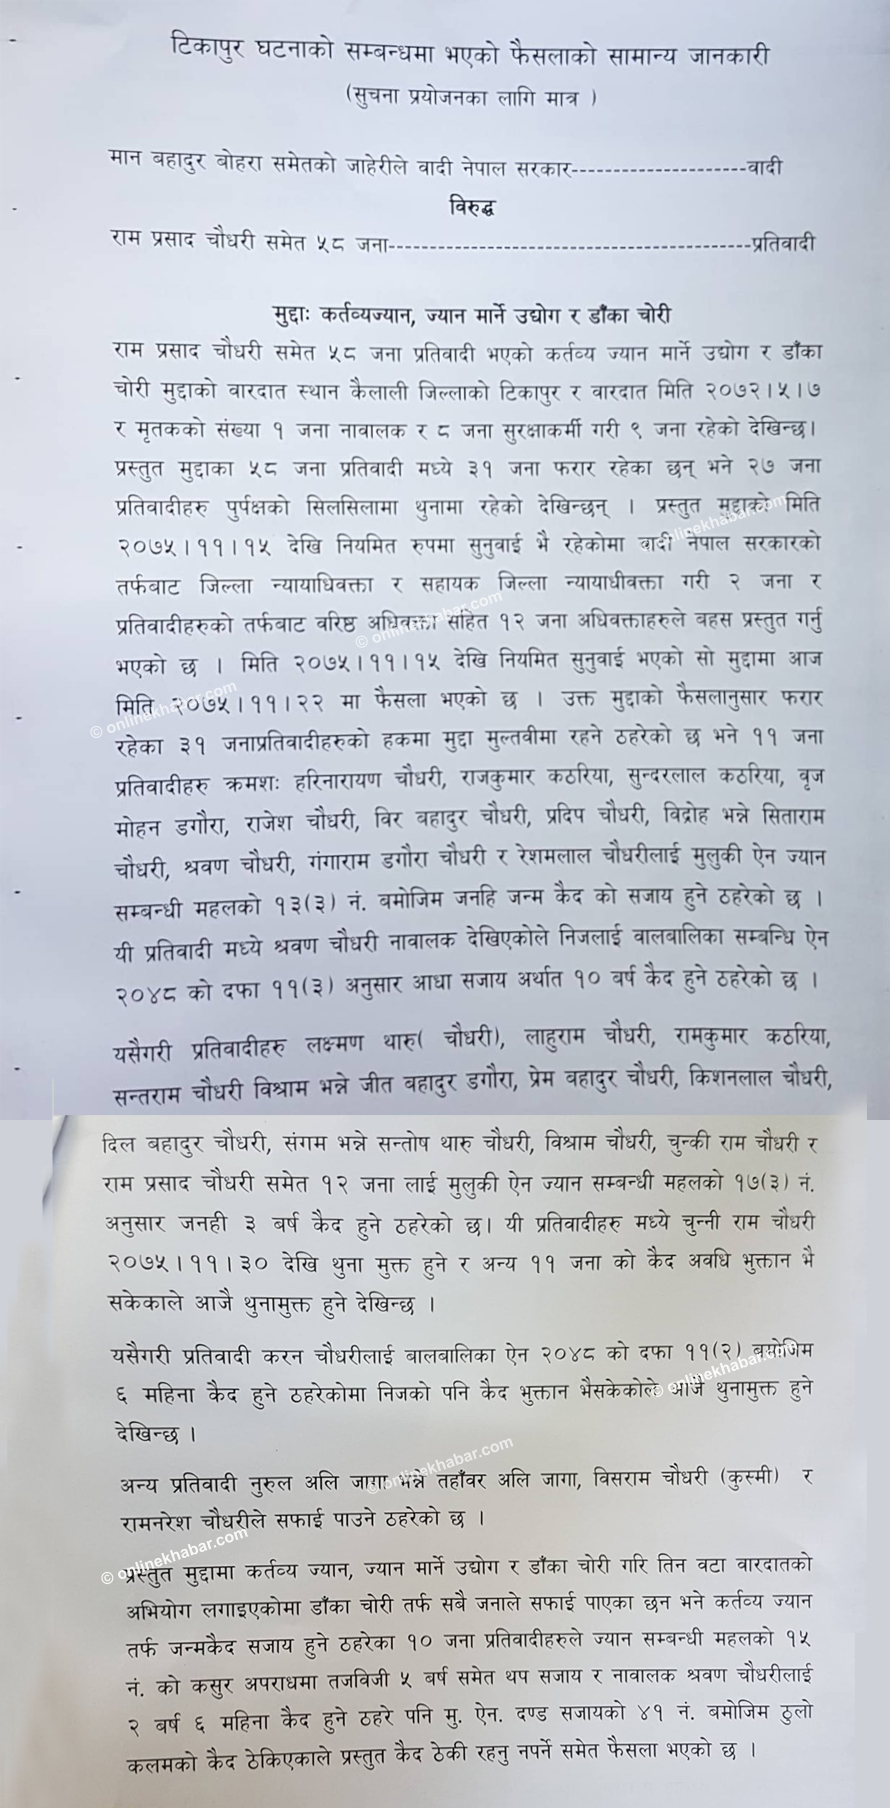 टिकापुर घटनाको सम्बन्धमा भएको फैसलाको सामान्य जानकारी
(सुचना प्रयोजनका लागि मात्र )
मान बहादुर बोहरा समेतको जाहेरीले वादी नेपाल सरकार---------------------वादी
विरुद्ध
राम प्रसाद चौधरी समेत ५८ जना--------------------------------------------प्रतिवादी
मुद्दाः कर्तव्यज्यान, ज्यान मार्ने उद्योग र डाँका चोरी
राम प्रसाद चौधरी समेत ५८ जना प्रतिवादी भएको कर्तव्य ज्यान मार्ने उद्योग र डाँका
चोरी मुद्दाको वारदात स्थान कैलाली जिल्लाको टिकापुर र वारदात मिति २०७२।५।७
र मृतकको संख्या १ जना नावालक र ८ जना सुरक्षाकर्मी गरी ९ जना रहेको देखिन्छ।
प्रस्तुत मुद्दाका ५८ जना प्रतिवादी मध्ये ३१ जना फरार रहेका छन् भने २७ जना
प्रतिवादीहरु पुर्पक्षको सिलसिलामा थुनामा रहेको देखिन्छन् । प्रस्तुत मुद्दाको मिति
२०७५।११।१५ देखि नियमित रुपमा सुनुवाई भै रहेकोमा वादी नेपाल सरकारको
तर्फबाट जिल्ला न्यायाधिवक्ता र सहायक जिल्ला न्यायाधीवक्ता गरी २ जना र
प्रतिवादीहरुको तर्फबाट वरिष्ठ अधिवक्ता सहित १२ जना अधिवक्ताहरुले बहस प्रस्तुत गर्नु
भएको छ । मिति २०७५।११।१५ देखि नियमित सुनुवाई भएको सो मुद्दामा आज
मिति २०७५।११।२२ मा फैसला भएको छ । उक्त मुद्दाको फैसलानुसार फरार
रहेका ३१ जनाप्रतिवादीहरुको हकमा मुद्दा मुल्तवीमा रहने ठहरेको छ भने ११ जना
प्रतिवादीहरु क्रमशः हरिनारायण चौधरी, राजकुमार कठरिया, सुन्दरलाल कठरिया, वृज
मोहन डगौरा, राजेश चौधरी, विर बहादुर चौधरी, प्रदिप चौधरी, विद्रोह भन्ने सिताराम
चौधरी, श्रवण चौधरी, गंगाराम डगौरा चौधरी र रेशमलाल चौधरीलाई मुलुकी ऐन ज्यान
सम्बन्धी महलको १३(३) नं. बमोजिम जनहि जन्म कैद को सजाय हुने ठहरेको छ ।
यी प्रतिवादी मध्ये श्रवण चौधरी नावालक देखिएकोले निजलाई वालबालिका सम्बन्धि ऐन
२०४८ को दफा ११(३) अनुसार आधा सजाय अर्थात १० बर्ष कैद हुने ठहरेको छ ।
यसैगरी प्रतिवादीहरु लक्ष्मण थारु( चौधरी), लाहुराम चौधरी, रामकुमार कठरिया,
सन्तराम चौधरी विश्राम भन्ने जीत बहादुर डगौरा, प्रेम बहादुर चौधरी, किशनलाल चौधरी,
दिल बहादुर चौधरी, संगम भन्ने सन्तोष थारु चौधरी, विश्राम चौधरी, चुन्की राम चौधरी र
राम प्रसाद चौधरी समेत १२ जना लाई मुलुकी ऐन ज्यान सम्बन्धी महलको १७(३) नं.
अनुसार जनही ३ बर्ष कैद हुने ठहरेको छ। यी प्रतिवादीहरु मध्ये चुन्नी राम चौधरी
२०७५।११।३० देखि थुना मुक्त हुने र अन्य ११ जना को कैद अवधि भुक्तान भै
सकेकाले आजै थुनामुक्त हुने देखिन्छ ।
यसैगरी प्रतिवादी करन चौधरीलाई बालबालिका ऐन २०४८ को दफा ११(२) बमोजिम
६ महिना कैद हुने ठहरेकोमा निजको पनि कैद भुक्तान भैसकेकोले आजै थुनामुक्त हुने
देखिन्छ ।
अन्य प्रतिवादी नुरुल अलि जागा भन्ने तहाँवर अलि जागा, विसराम चौधरी (कुस्मी) र
रामनरेश चौधरीले सफाई पाउने ठहरेको छ ।
प्रस्तुत मुद्दामा कर्तव्य ज्यान, ज्यान मार्ने उद्योग र डाँका चोरी गरि तिन वटा वारदातको
अभियोग लगाइएकोमा डाँका चोरी तर्फ सबै जनाले सफाई पाएका छन भने कर्तव्य ज्यान
तर्फ जन्मकैद सजाय हुने ठहरेका १० जना प्रतिवादीहरुले ज्यान सम्बन्धी महलको १५
नं. को कसुर अपराधमा तजविजी ५ बर्ष समेत थप सजाय र नावालक श्रवण चौधरीलाई
२ बर्ष ६ महिना कैद हुने ठहरे पनि मु. ऐन. दण्ड सजायको ४१ नं. बमोजिम ठुलो
कलमको कैद ठेकिएकाले प्रस्तुत कैद ठेकी रहनु नपर्ने समेत फैसला भएको छ ।
© onlinekhabar.com
© onlinekhabar.com
© onlinekhabar.com
© onlinekhabar.com
© onlinekhabar.com
© onlinekhabar.com